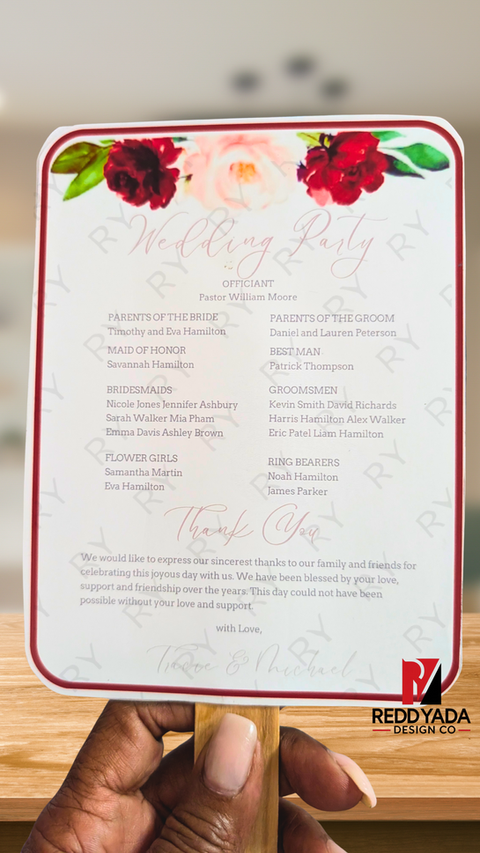 Wedding Party
OFFICIANT
Pastor William Moore
PARENTS OF THE BRIDE
Timothy and Eva Hamilton
PARENTS OF THE GROOM
Daniel and Lauren Peterson
MAID OF HONOR
Savannah Hamilton
BEST MAN
Patrick Thompson
BRIDESMAIDS
Nicole Jones Jennifer Ashbury
Sarah Walker Mia Pham
Emma Davis Ashley Brown
GROOMSMEN
Kevin Smith David Richards
Harris Hamilton Alex Walker
Eric Patel Liam Hamilton
FLOWER GIRLS
Samantha Martin
Eva Hamilton
RING BEARERS
Noah Hamilton
James Parker
Thank You
We would like to express our sincerest thanks to our family and friends for
celebrating this joyous day with us. We have been blessed by your love,
support and friendship over the years. This day could not have been
possible without your love and support.
with Love,
& Michael
REDDYADA
DESIGN CO